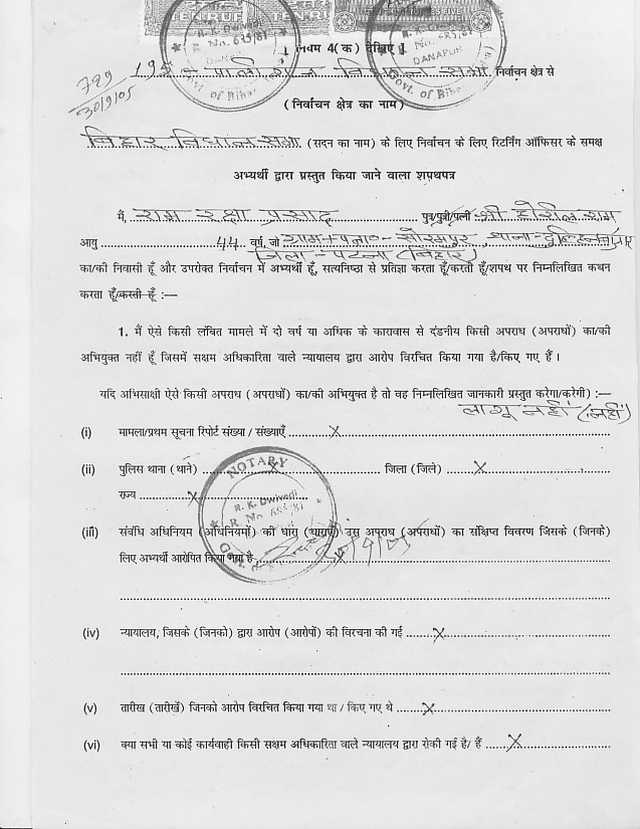 TEN RUPEES
R. K. Dwivedi
R. No. 685/81
DANAPUR
Govt. of Bihar
R. No. 685/81
DANAPUR
Govt. of Bihar
789
30/9/05
नियम 4(क) देखिए
निर्वाचन क्षेत्र से
(निर्वाचन क्षेत्र का नाम)
बिहार विधान सभा (सदन का नाम) के लिए निर्वाचन के लिए रिटर्निंग ऑफिसर के समक्ष
अभ्यर्थी द्वारा प्रस्तुत किया जाने वाला शपथपत्र
मैं, राम रक्षा प्रसाद पुत्र/पुत्री/पत्नी श्री होरील राम
आयु 44 वर्ष, जो ग्राम+पत्रा०- सोरमपुर, थाना-
जिला - पटना (बिहार)
का/की निवासी हूँ और उपरोक्त निर्वाचन में अभ्यर्थी हूँ, सत्यनिष्ठा से प्रतिज्ञा करता हूँ/करती हूँ/शपथ पर निम्नलिखित कथन
करता हूँ/करती हूँ :—
1. मैं ऐसे किसी लंबित मामले में दो वर्ष या अधिक के कारावास से दंडनीय किसी अपराध (अपराधों) का/की
अभियुक्त नहीं हूँ जिसमें सक्षम अधिकारिता वाले न्यायालय द्वारा आरोप विरचित किया गया है/किए गए हैं ।
यदि अभिसाक्षी ऐसे किसी अपराध (अपराधों) का/की अभियुक्त है तो वह निम्नलिखित जानकारी प्रस्तुत करेगा/करेगी) :—
लागू नहीं (नहीं)
(i) मामला/प्रथम सूचना रिपोर्ट संख्या / संख्याएँ X
(ii) पुलिस थाना (थाने) X जिला (जिले) X
राज्य X
NOTARY
R. K. Dwivedi
R. No. 685/81
(iii) संबंधि अधिनियम (अधिनियमों) की धारा (धाराएं) उस अपराध (अपराधों) का संक्षिप्त विवरण जिसके (जिनके)
लिए अभ्यर्थी आरोपित किया गया है X
(iv) न्यायालय, जिसके (जिनको) द्वारा आरोप (आरोपों) की विरचना की गई X
(v) तारीख (तारीखें) जिनको आरोप विरचित किया गया था / किए गए थे X
(vi) क्या सभी या कोई कार्यवाही किसी सक्षम अधिकारिता वाले न्यायालय द्वारा रोकी गई है/ हैं X